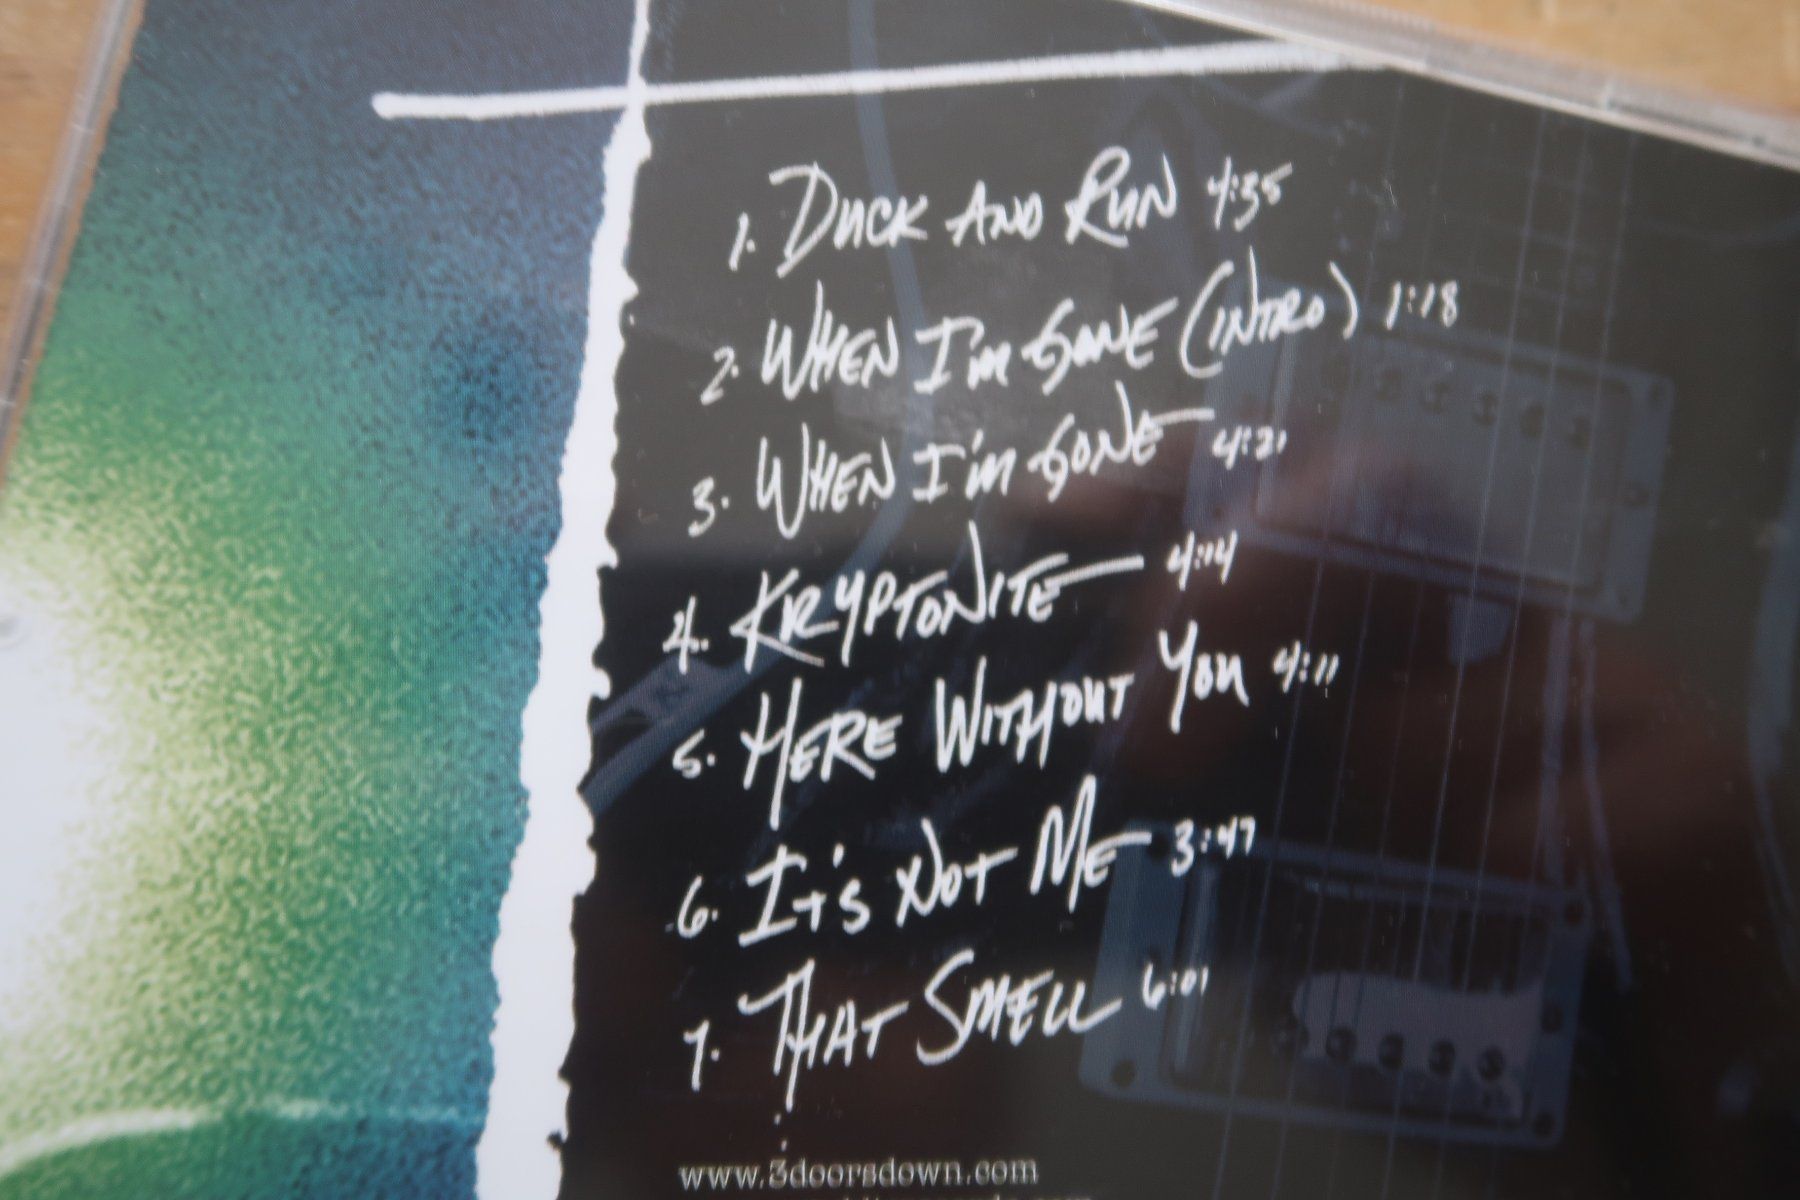 1. Duck And Run 4:35
2. When I'm Gone (Intro) 1:18
3. When I'm Gone 4:21
4. Kryptonite 4:14
5. Here Without You 4:11
6. It's Not Me 3:47
7. That Smell 6:01
www.3doorsdown.com